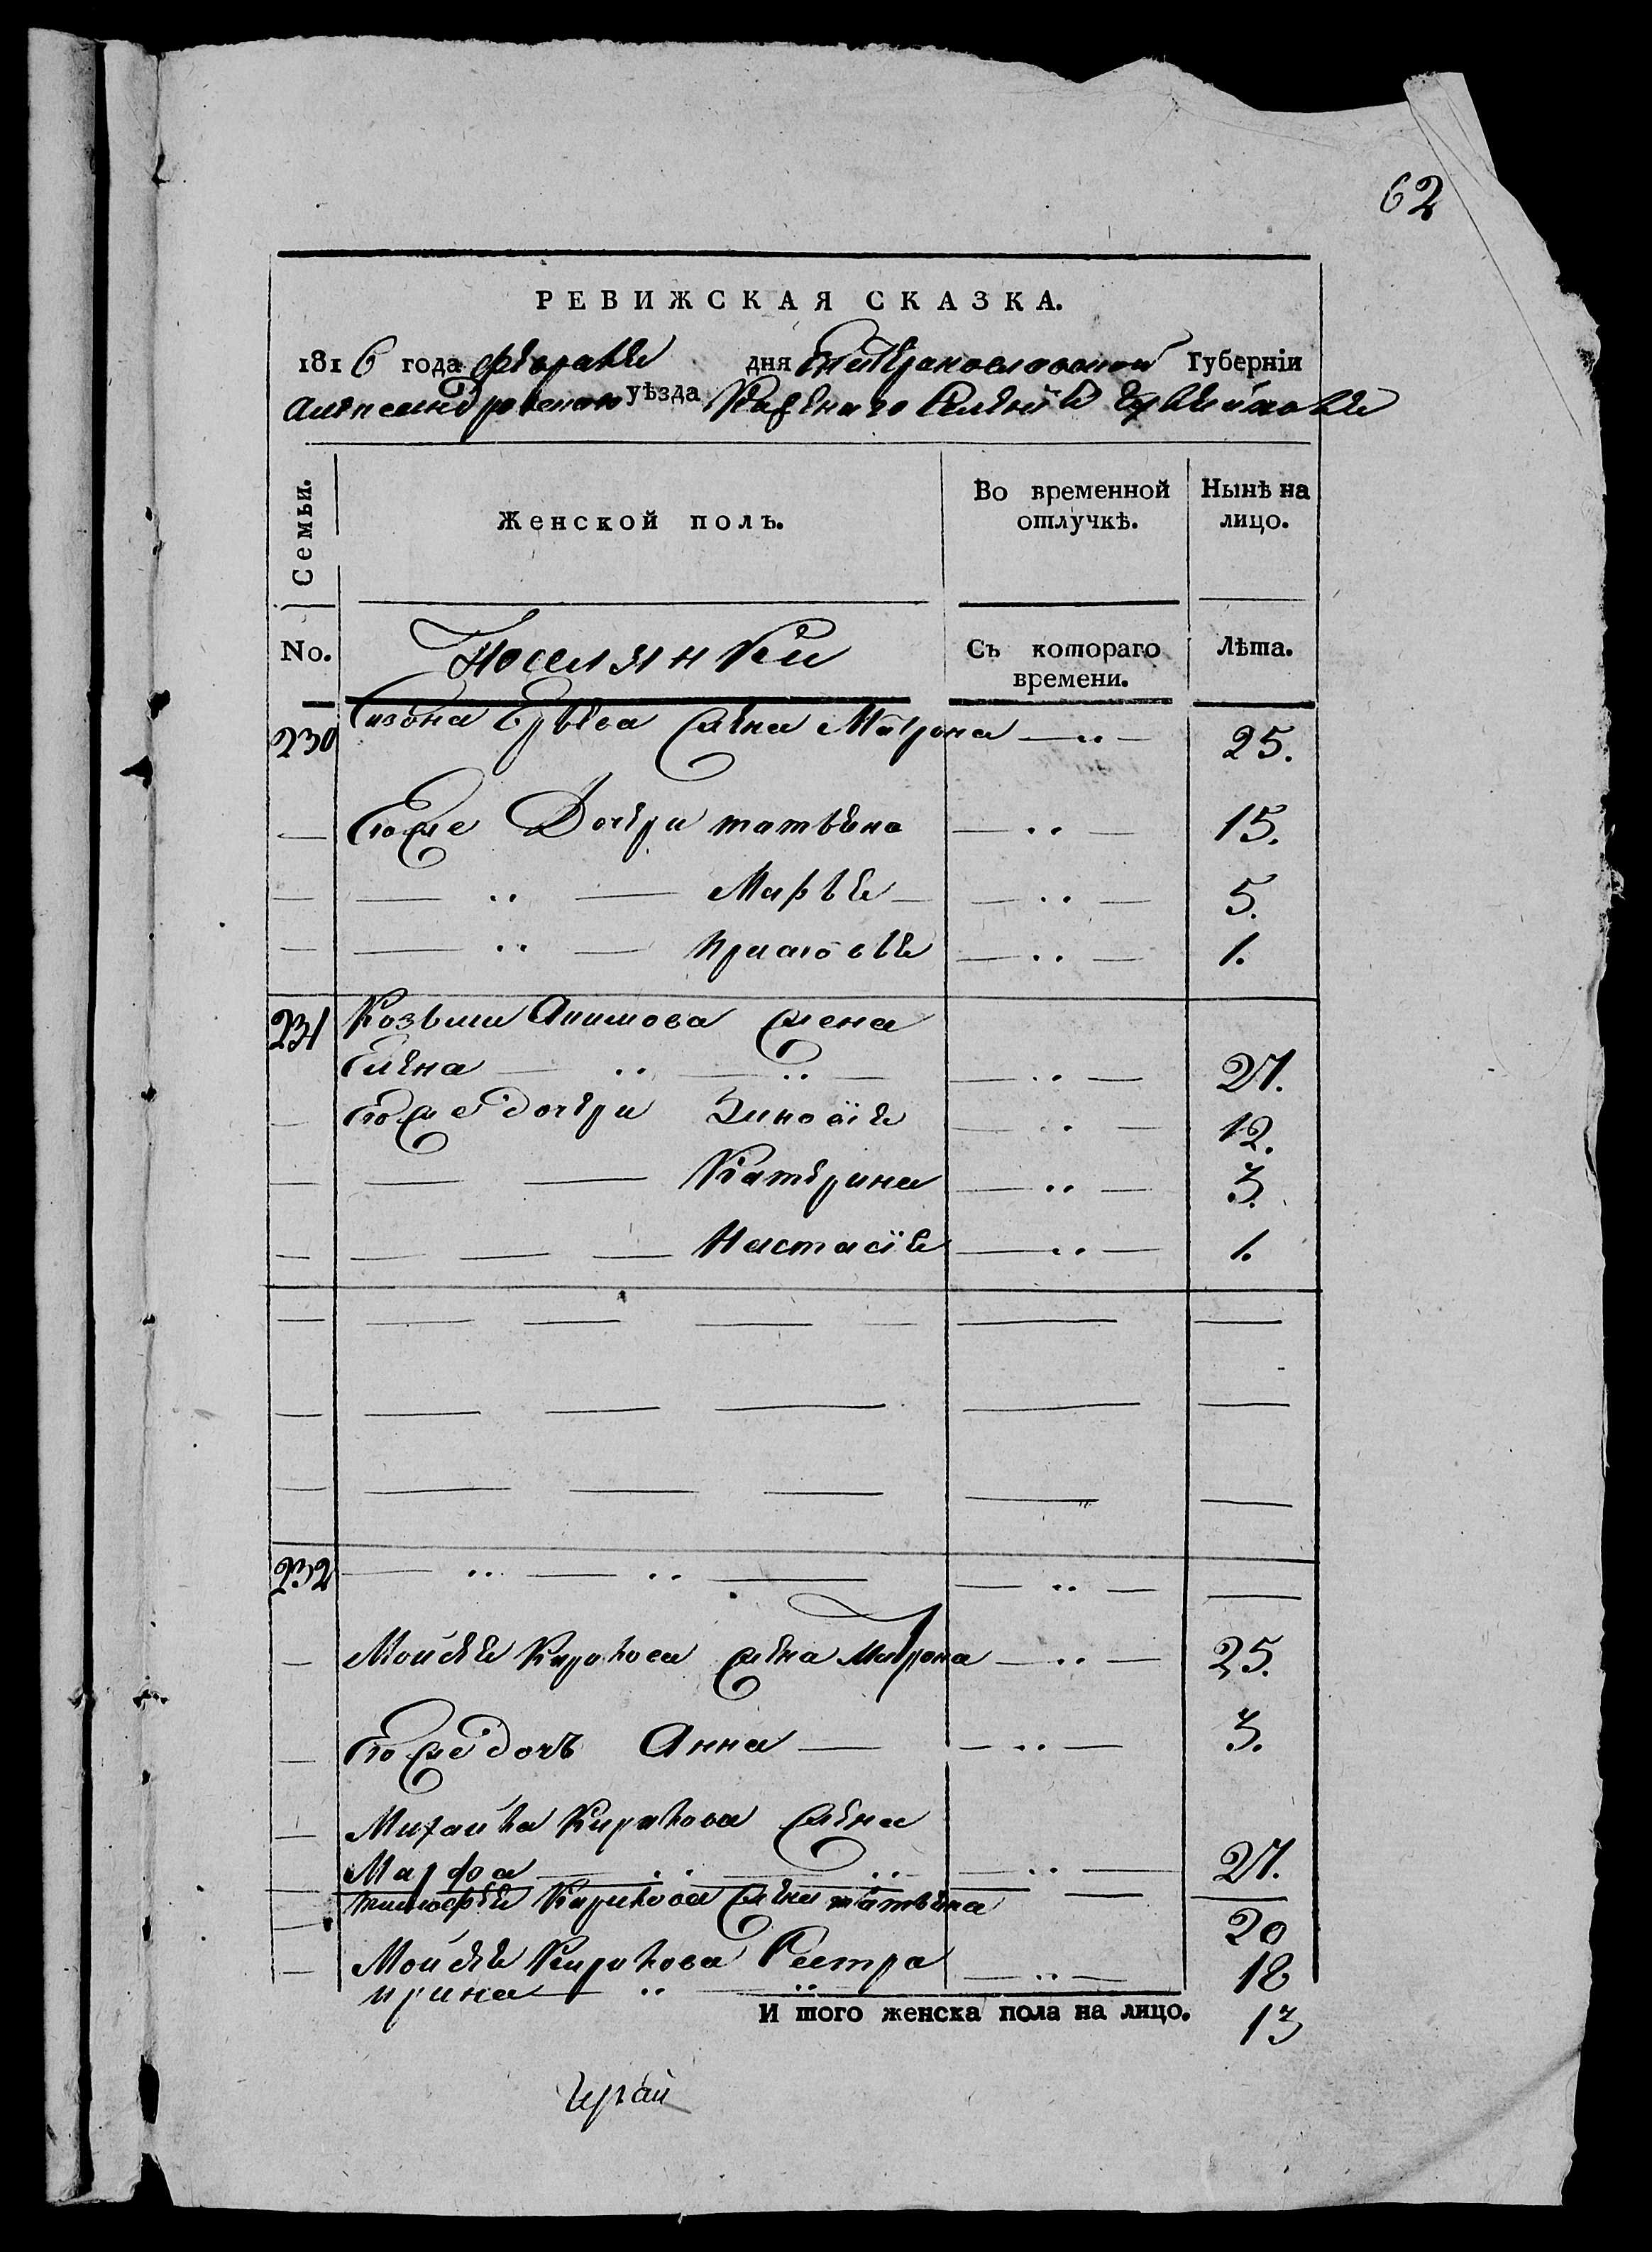 62
РЕВИЖСКАЯ СКАЗКА.
1816 года февраля дня Екатеринославской Губерніи
Александровскаго уѣзда Казенаго Селенія
Семьи. Женской полъ. Во временной отлучкѣ. Нынѣ на лицо.
No. Поселянки Съ котораго времени. Лѣта.
230 Сизона жена Матрона — „ — 25.
— Его же Дочери татьяна — „ — 15.
— — „ — Марья — — „ — 5.
— — „ — — „ — 1.
231 Козьмы Акимова жена
Елена — „ — „ — — „ — 27.
— Его же дочери Зиновія — „ — 12.
— — — Катерина — „ — 3.
— — — — Настасія — „ — 1.
— — — — — — —
— — — — — —
— — — — — —
232 — „ — „ — — „ — —
— Мойсея Кирикова жена Матрона — „ — 25.
— Его же дочь Анна — — „ — 3.
— Михайла Кирикова жена
Марфа — „ — „ — „ — 27.
— тимофея Кирикова жена татьяна — 20
— Мойсея Кирикова Сестра — „ — 18
ирина — „ — „
И того женска пола на лицо. 13